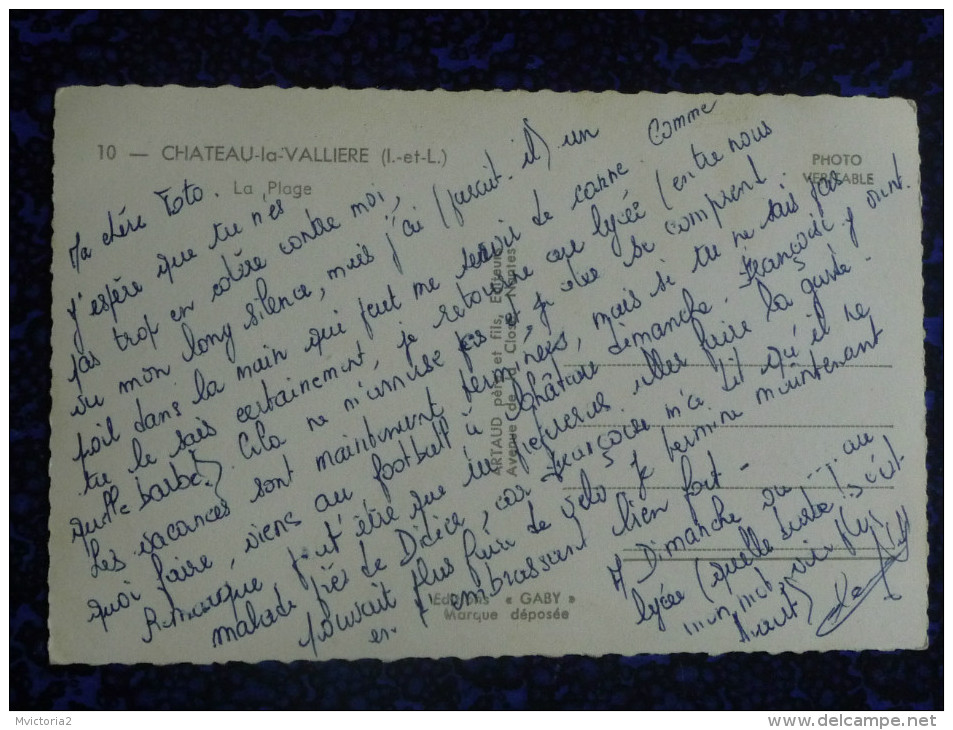 10 — CHATEAU-la-VALLIERE (I.-et-L.)
La Plage
PHOTO
VERITABLE
ARTAUD père et fils, Editeurs
Avenue de la Close, Nantes
Editions « GABY »
Marque déposée
Ma chère Toto.
J'espère que tu n'es
pas trop en colère contre moi,
vu mon long silence, mais j'ai (paraît-il) un
poil dans la main qui peut me servir de canne comme
tu le sais certainement, je retourne au lycée (entre nous
quelle barbe!) Cela ne m'amuse pas et je
Les vacances sont maintenant terminées, mais si tu ne sais pas
quoi faire, viens au football à Château dimanche. Françoise y vient.
Remarque, peut être que tu
malade près de Didice, car Françoise m'a dit qu'il ne
pouvait plus faire de vélo. Je termine maintenant
en t'embrassant bien fort -
A Dimanche ou ..... au
lycée (quelle barbe! s'écrit
mon mot
avant)
Mvictoria2